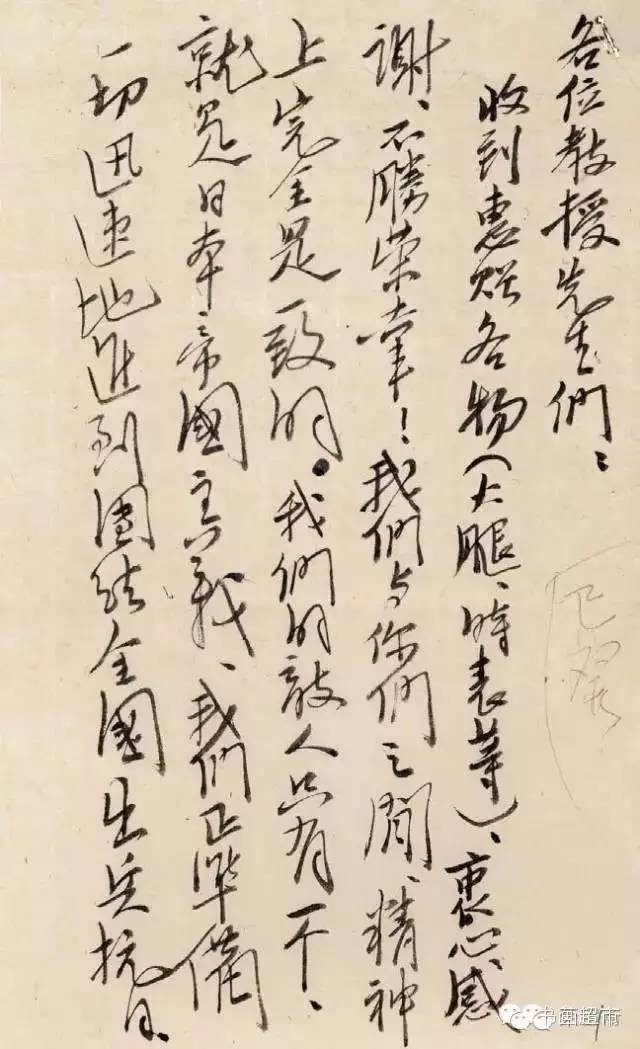 各位教授先生們：
收到惠贈各物（火腿、時表等），衷心感
謝，不勝榮幸！我們与你們之間，精神
上完全是一致的。我們的敵人只有一个，
就是日本帝國主義，我們正準備
一切迅速地進到團結全國出兵抗日，
已翠
书画超市